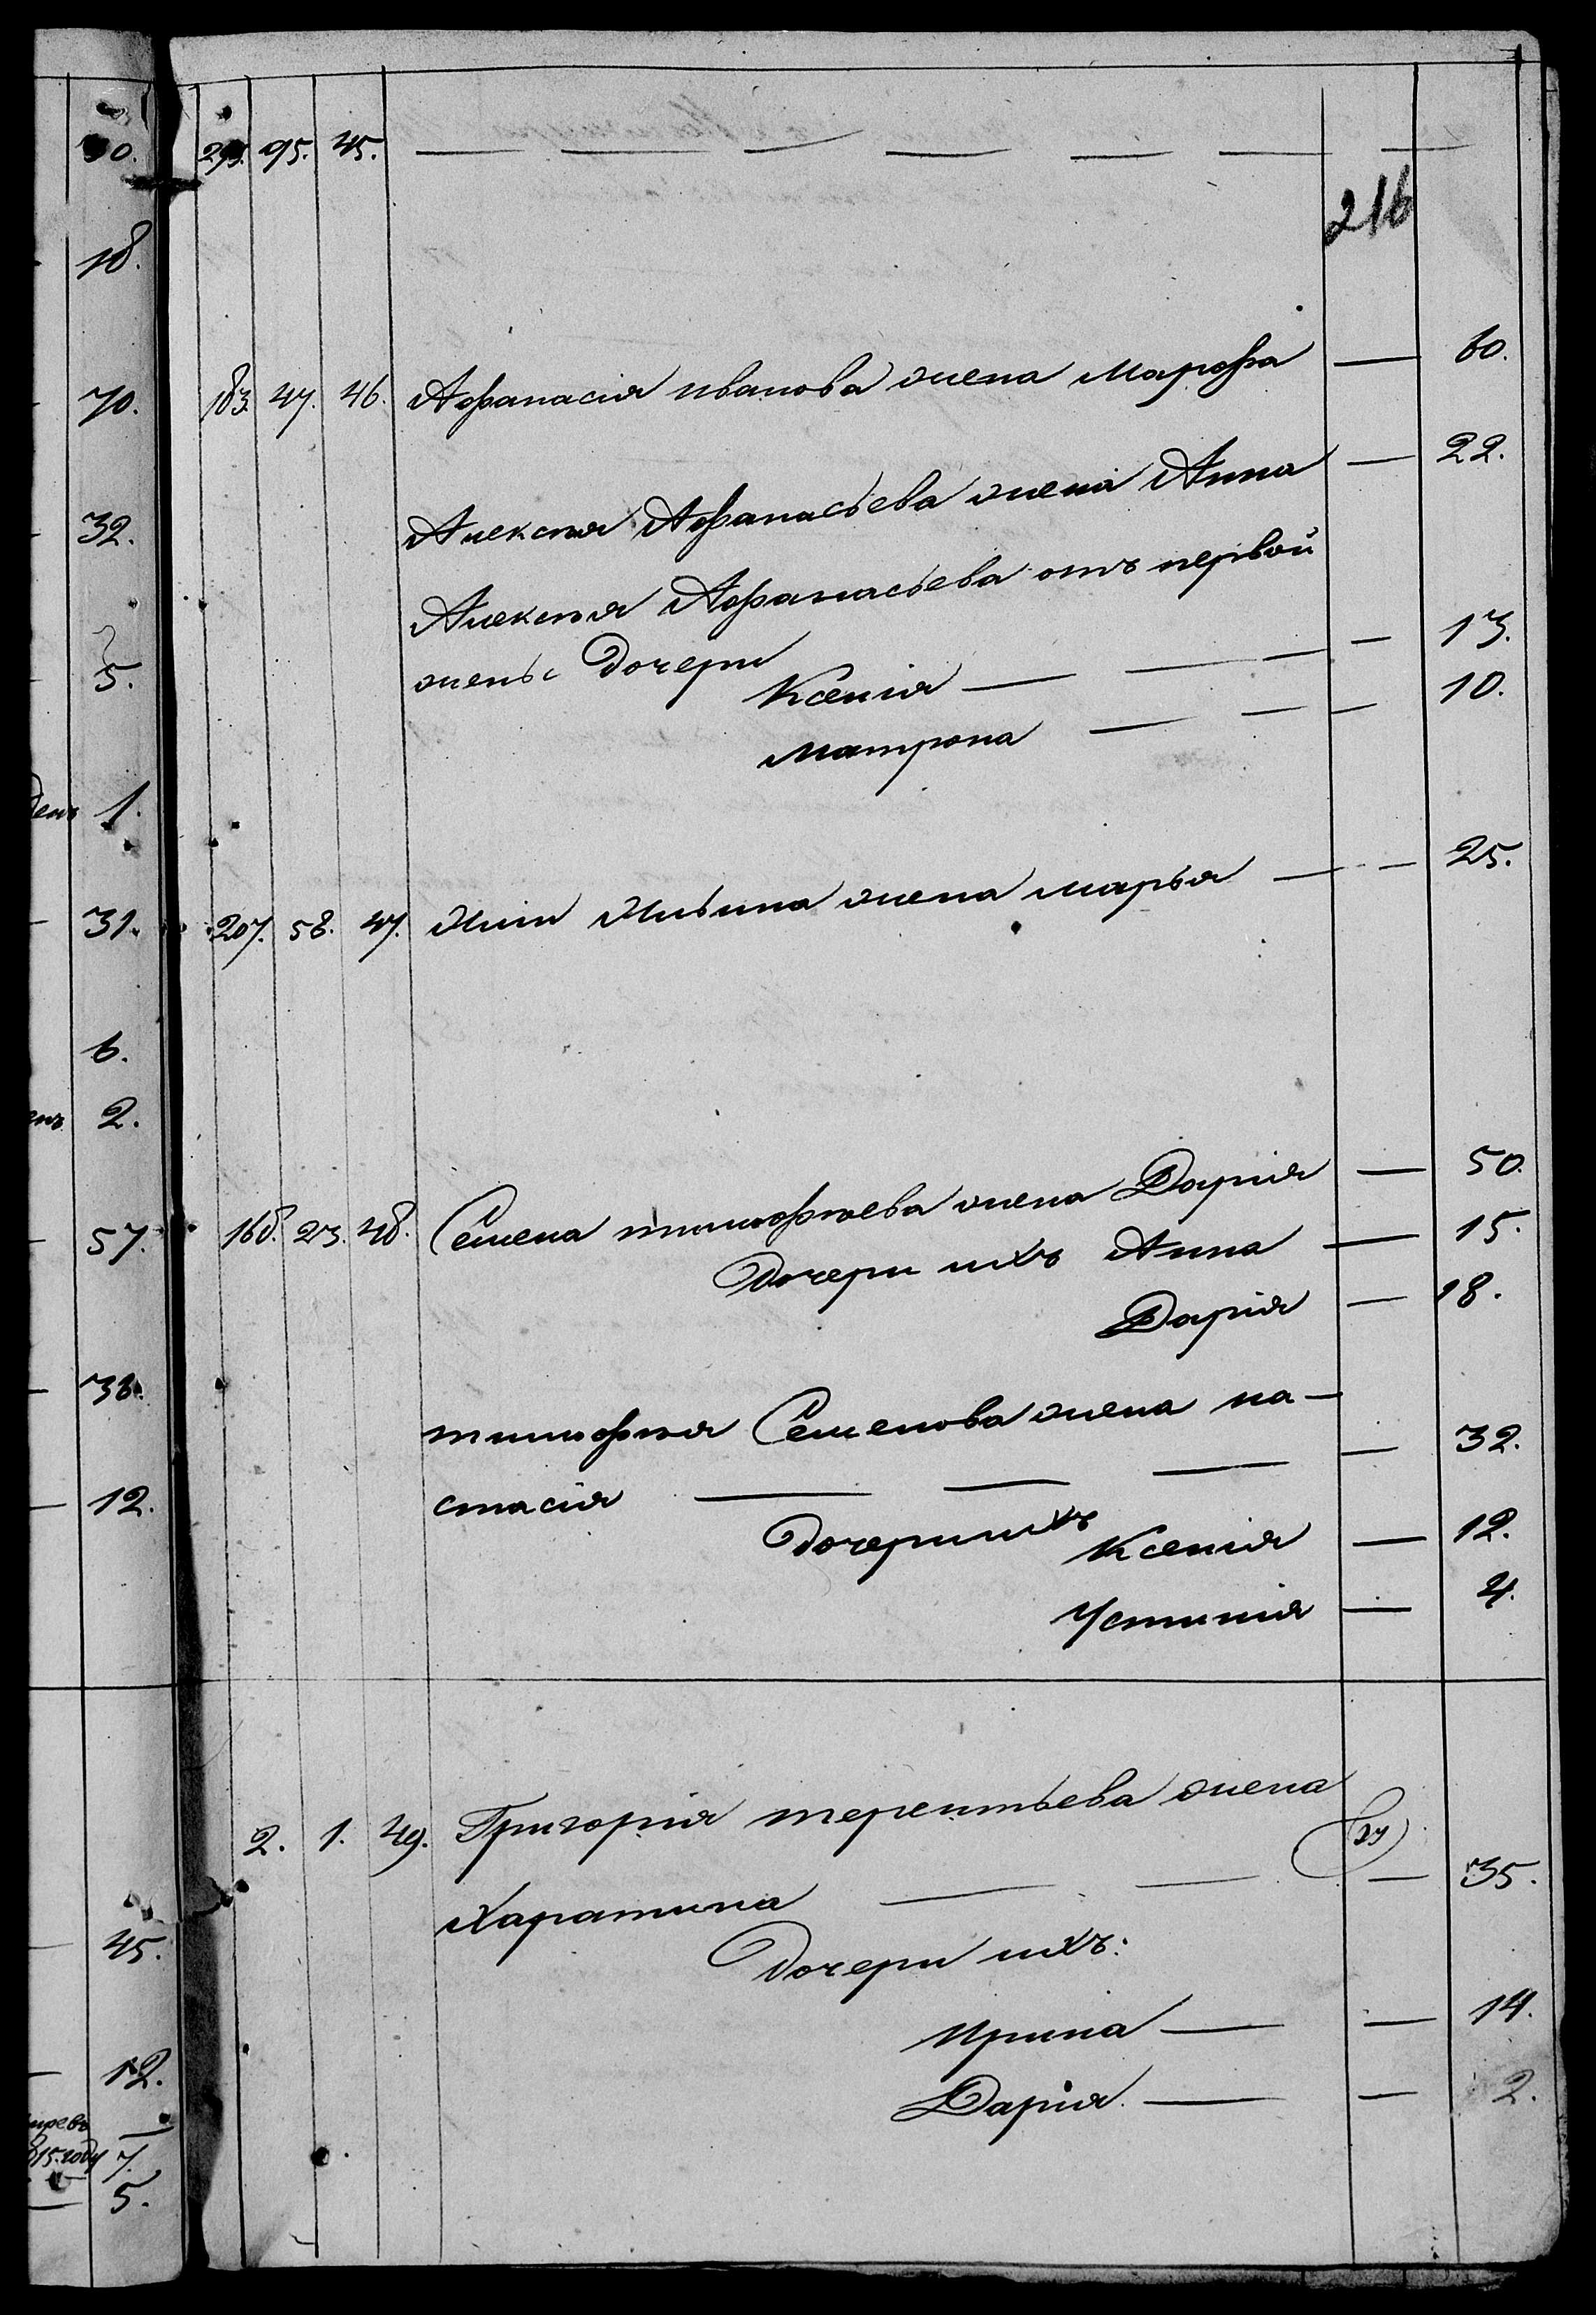 30.
295. 95. 45. — — — — — — —
216
18.
70.
183. 47. 46. Афанасія иванова жена марфа — 60.
32.
Алексѣя Афанасьева жена Анна — 22.
Алексѣя Афанасьева отъ первой
жены Дочери
5.
Ксенія — — — — 13.
матрона — — — 10.
денъ 1.
31.
207. 58. 47. Ильи Ильина жена марья — — 25.
6.
енъ 2.
57.
168. 23. 48. Семена тимофѣева жена Дарія — 50.
Дочери ихъ Анна — 15.
Дарія — 18.
38.
тимофѣя Семенова жена на-
стасія — — — — 32.
12.
Дочери ихъ Ксенія — 12.
Устинія — 4.
2. 1. 49. Григорія терентьева жена
Харатина — — — 35.
45.
Дочери ихъ:
Ирина — — 14.
12.
Дарія. — — 2.
815. году 7.
5.